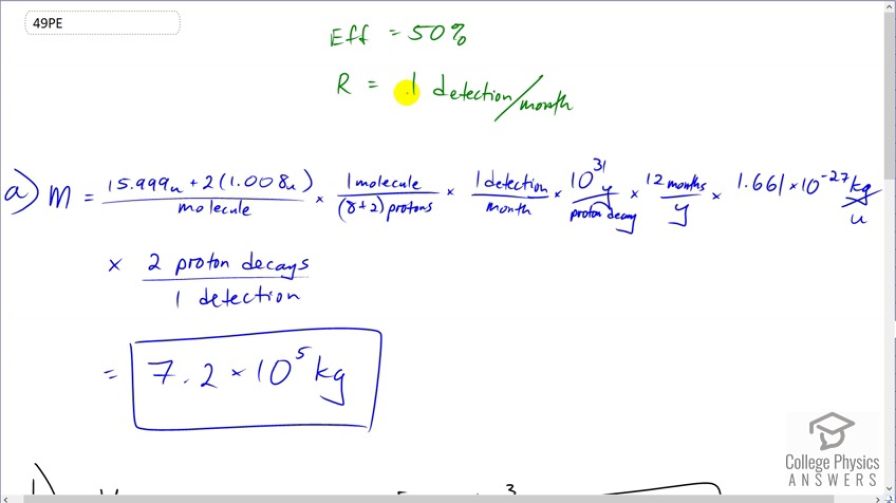 49PE
Eff = 50%
R = 1 detection/month
a) M = 15.999u + 2(1.008u) / molecule × 1 molecule / (8+2) protons × 1 detection / month × 10^31 y / proton decay × 12 months / y × 1.661 × 10^-27 kg / u
× 2 proton decays / 1 detection
= 7.2 × 10^5 kg
College Physics
ANSWERS